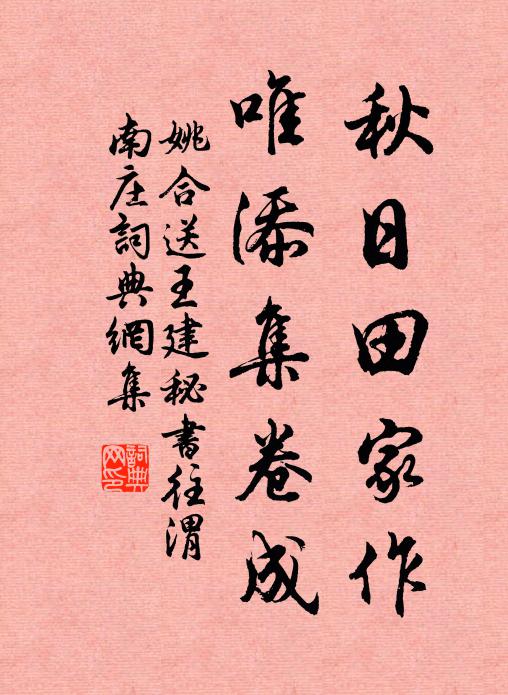 秋日田家作
唯添集卷成
姚合送王建秘書往渭
南庄詞典網集
詞典网印